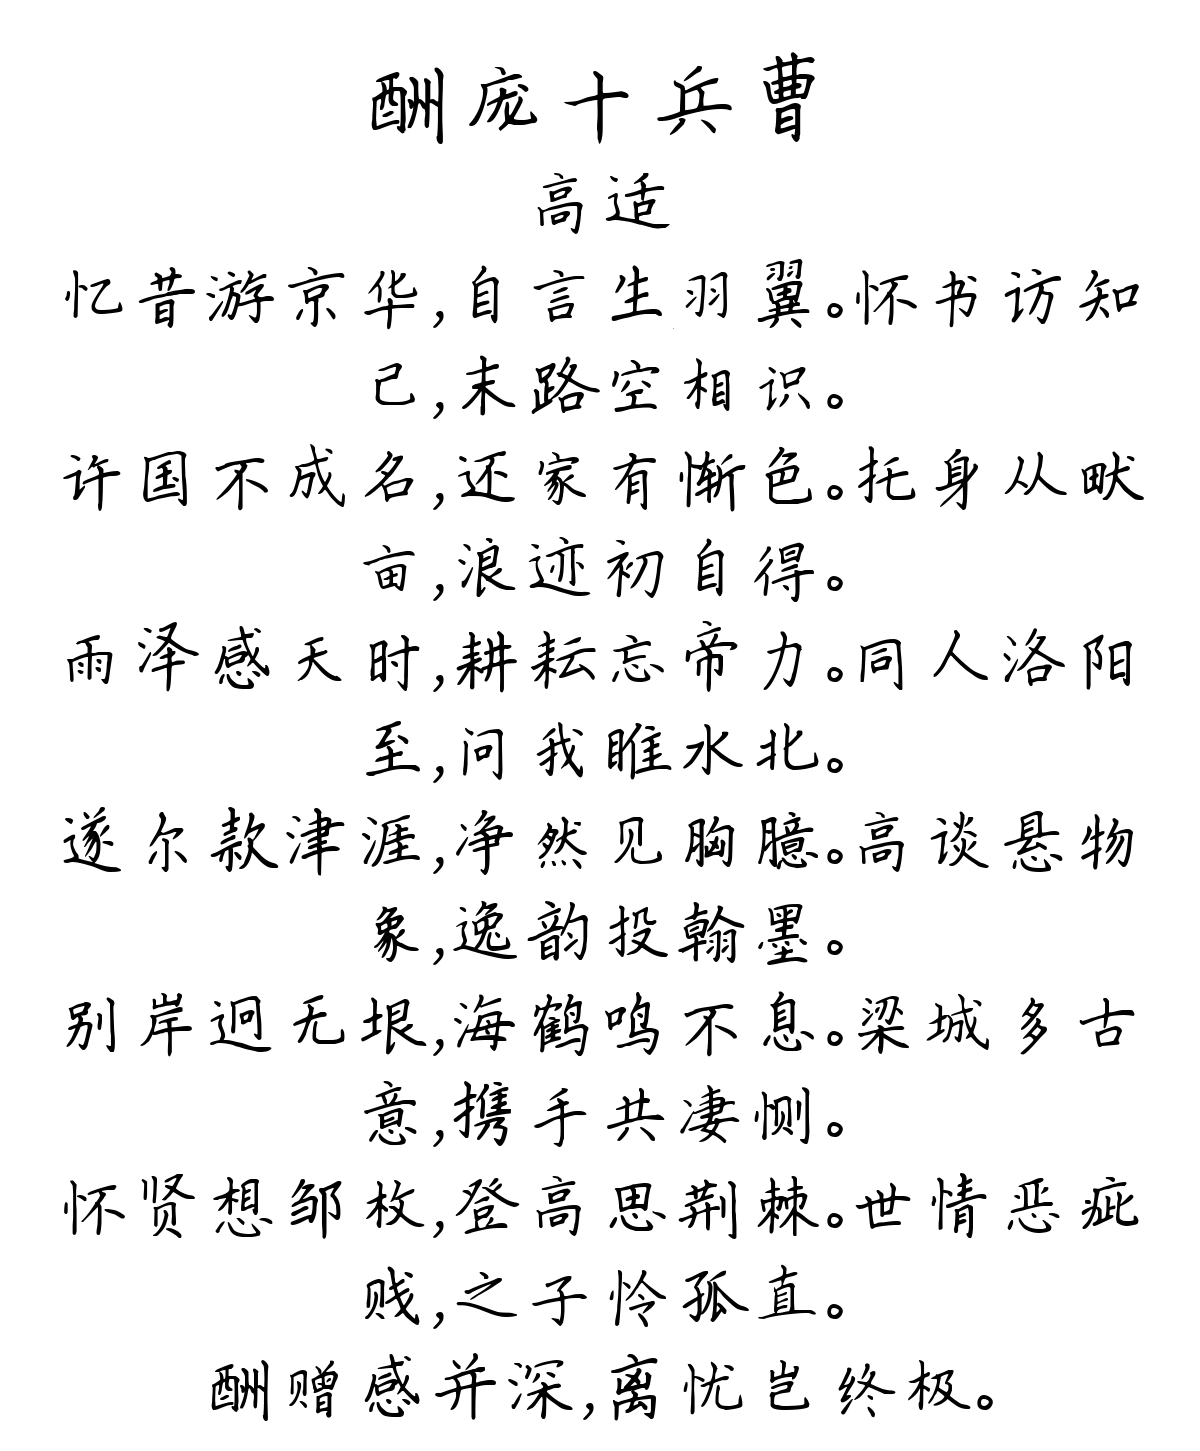 酬庞十兵曹
高适
忆昔游京华,自言生羽翼。怀书访知
己,末路空相识。
许国不成名,还家有惭色。托身从畎
亩,浪迹初自得。
雨泽感天时,耕耘忘帝力。同人洛阳
至,问我睢水北。
遂尔款津涯,净然见胸臆。高谈悬物
象,逸韵投翰墨。
别岸迥无垠,海鹤鸣不息。梁城多古
意,携手共凄恻。
怀贤想邹枚,登高思荆棘。世情恶疵
贱,之子怜孤直。
酬赠感并深,离忧岂终极。